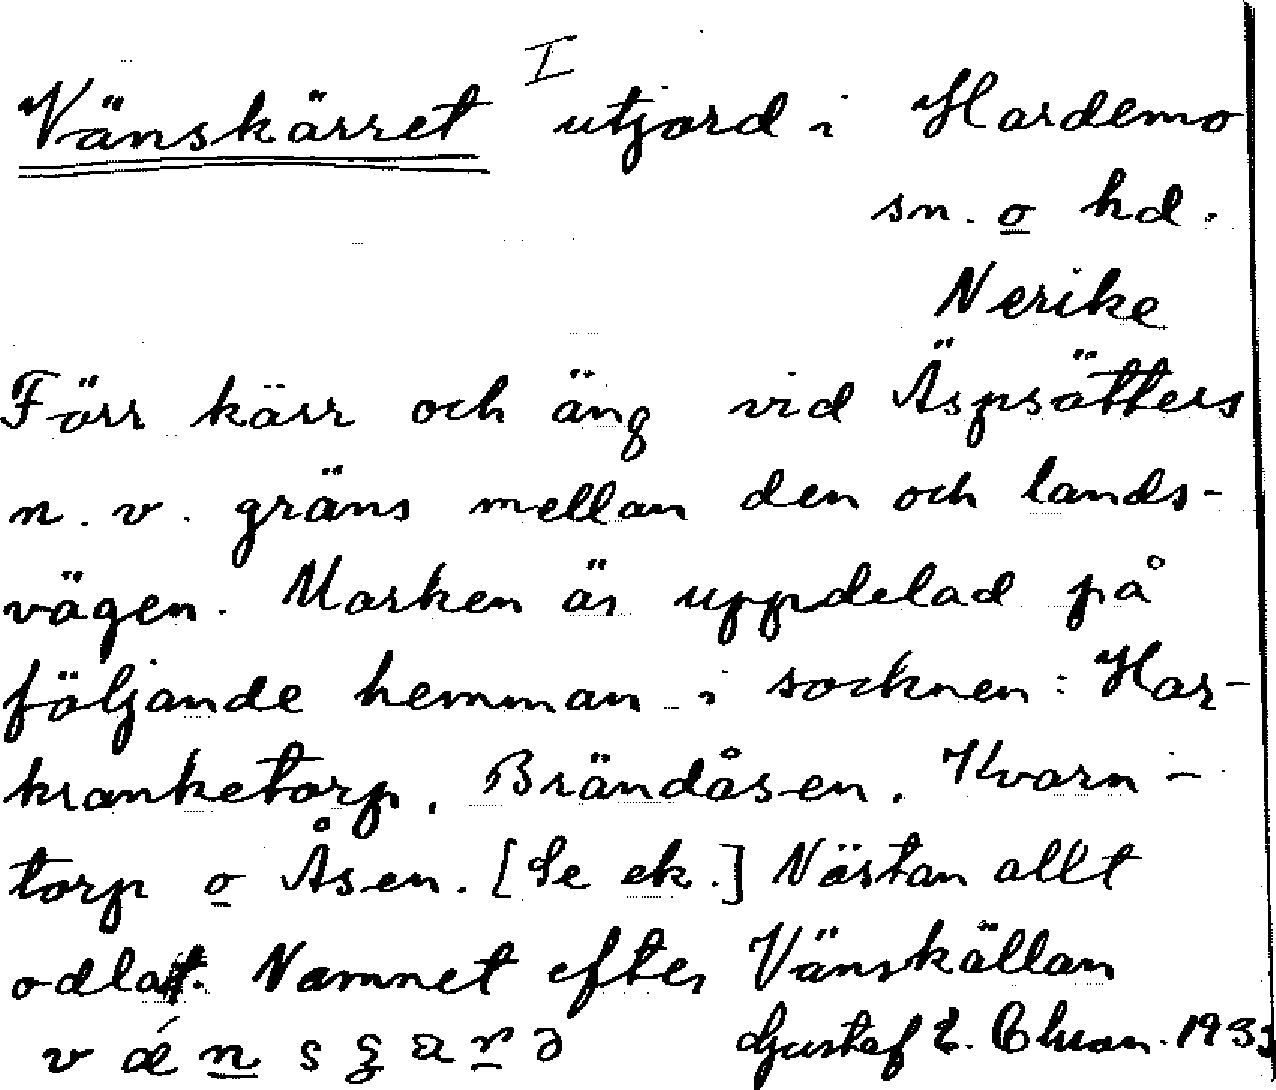 Vänskärret I utjord i Hardemo
sn. o hd.
Nerike
Förr kärr och äng vid Äspsätters
n. v. gräns mellan den och lands-
vägen. Marken är uppdelad på
följande hemman i socknen: Har-
kranketorp, Brändåsen, Kvarn-
torp o Åsen. [Se ek.] Nästan allt
odlat. Namnet efter Vänskällan
Gustaf E. 193